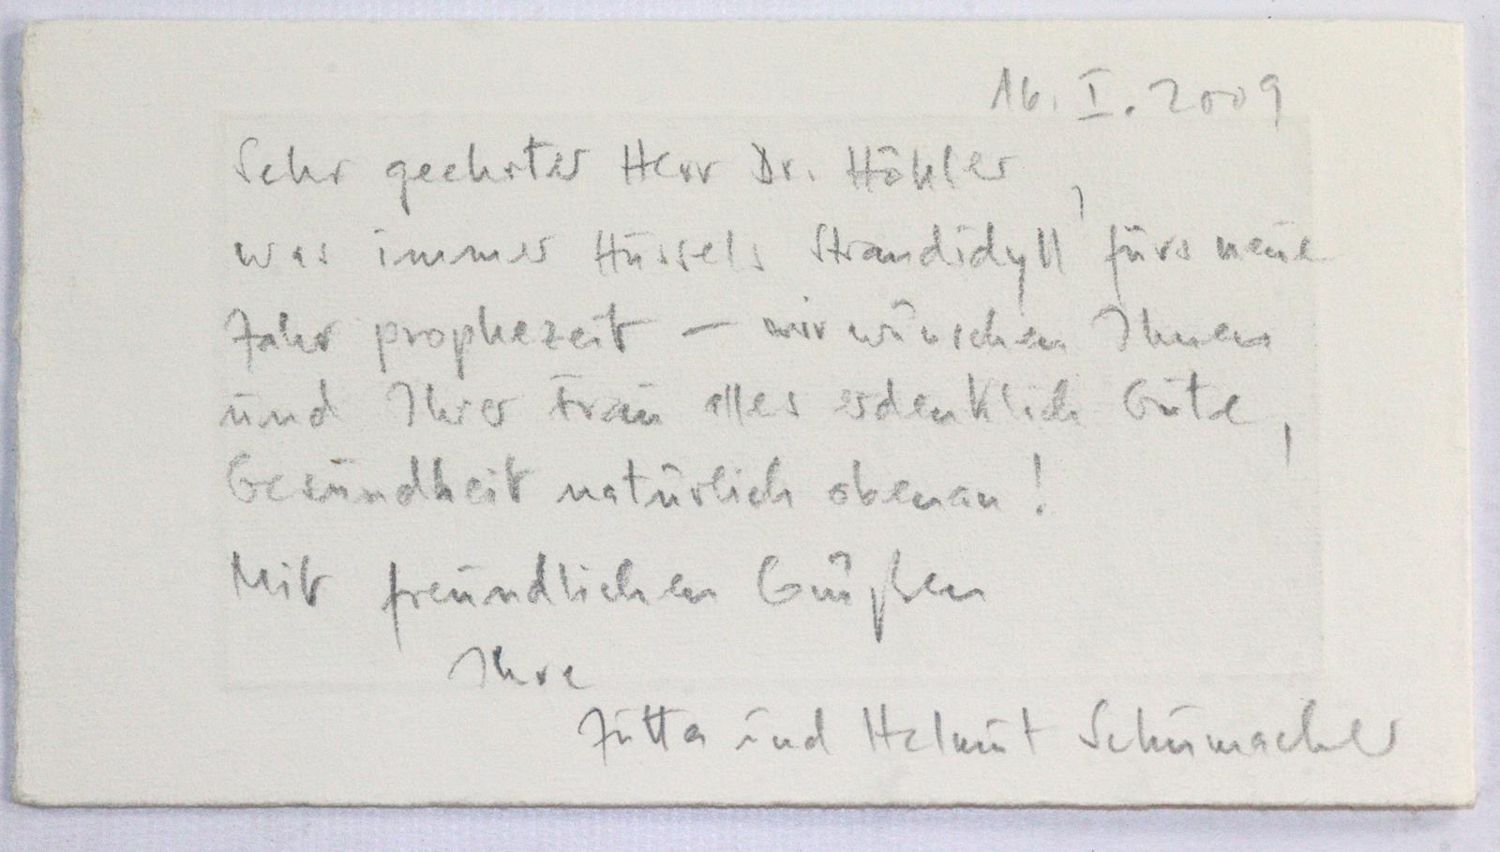 16. I. 2009
Sehr geehrter Herr Dr. Höhler,
was immer Hussels Strandidyll fürs neue
Jahr prophezeit – wir wünschen Ihnen
und Ihrer Frau alles erdenklich Gute,
Gesundheit natürlich obenan!
Mit freundlichen Grüßen
Ihre
Jutta und Helmut Schumacher